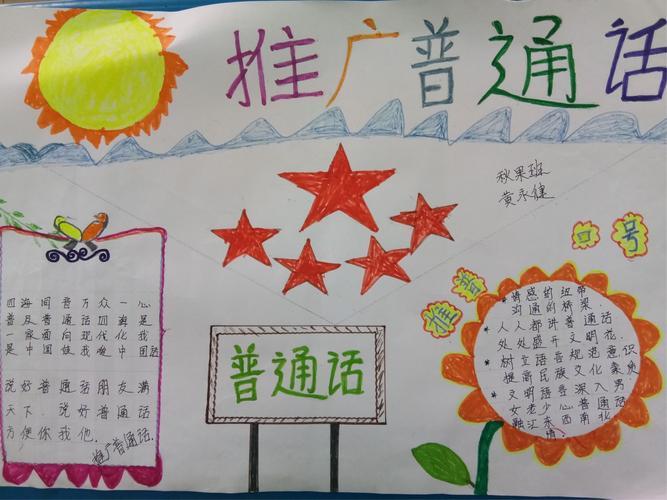 推广普通话
秋果班
黄永健
四海同音万众一心
普及普通话四海是
一家面向现代化我
是中国娃我说中国话
说好普通话朋友满
天下.说好普通话
方便你我他.
推广普通话.
普通话
推普口号
* 情感的纽带
沟通的桥梁.
* 人人都讲普通话
处处盛开文明花.
* 树立语言规范意识
提高民族文化素质
* 文明语言深入男
女老少心普通话
融江东西南北
情.